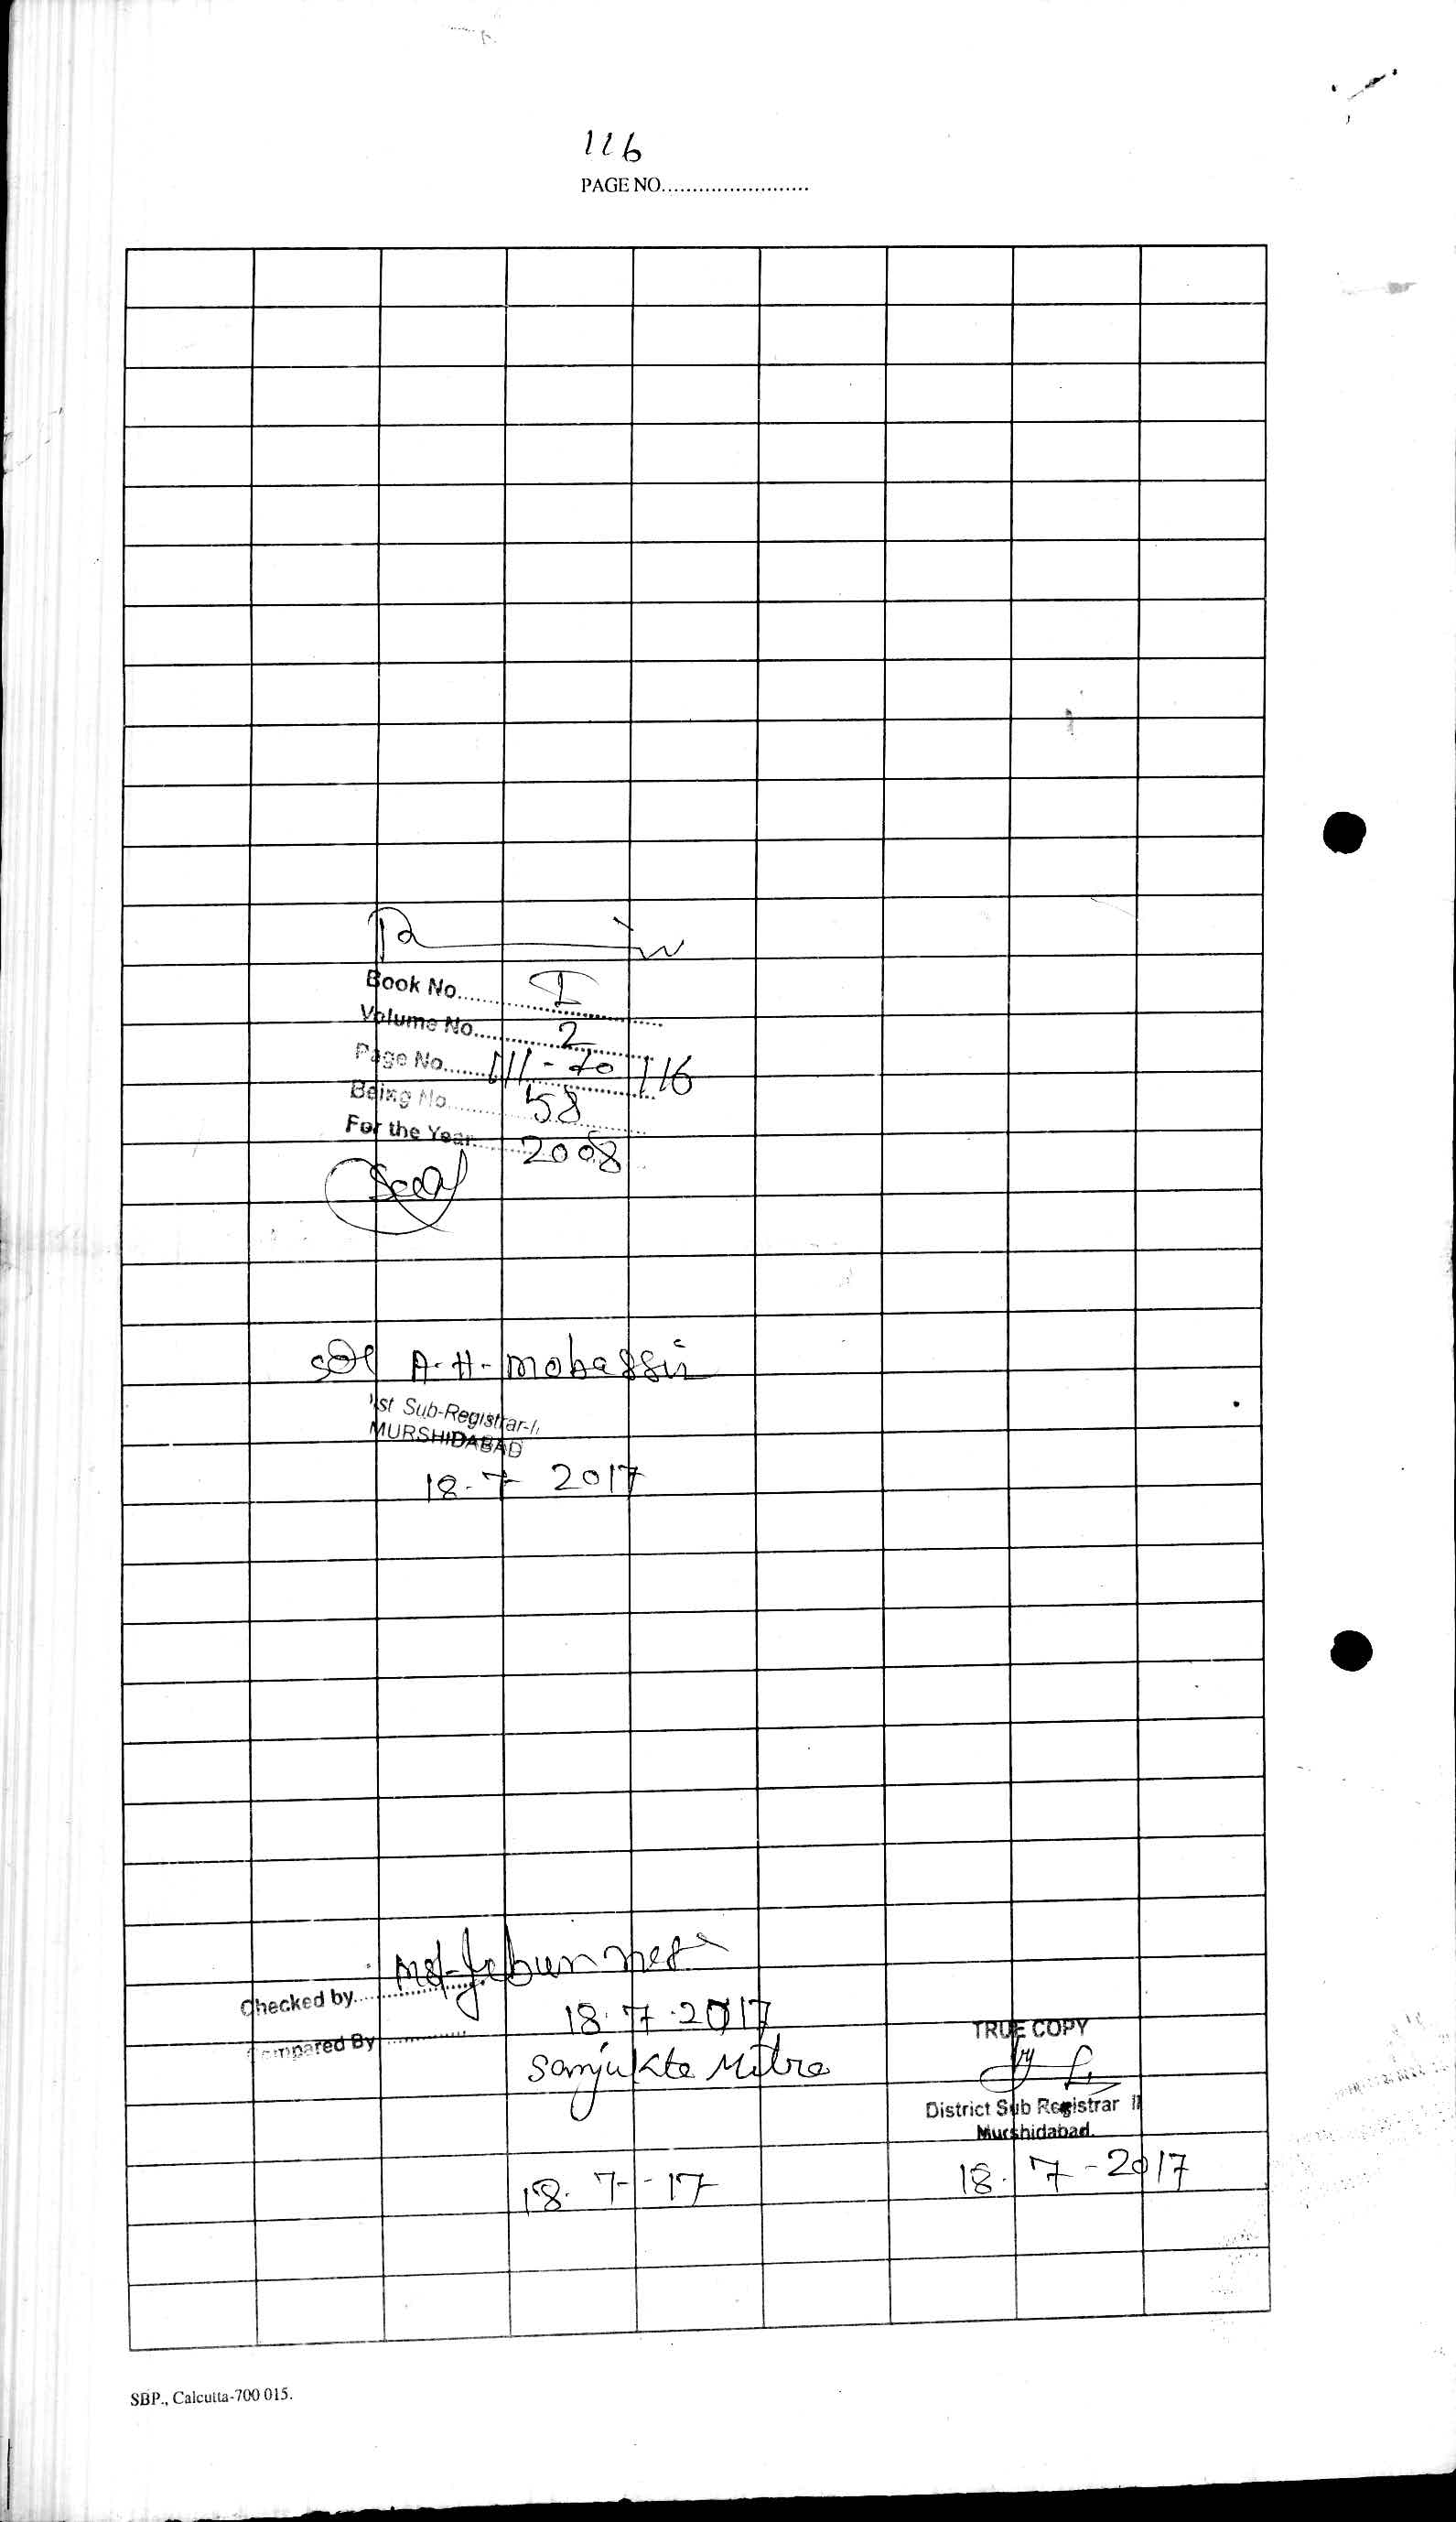 116
PAGE NO.........................
Book No. I
Volume No. 2
Page No. 111 - to 116
Being No. 58
For the Year 2008
Seal
Sd/ A. H. Mobassir
Dist Sub-Registrar-II
MURSHIDABAD
18. 7 2017
Checked by
18. 7. 2017
Compared By
Sanjukta Mitra
18. 7 - 17
TRUE COPY
District Sub Registrar II
Murshidabad.
18. 7 - 2017
SBP., Calcutta-700 015.